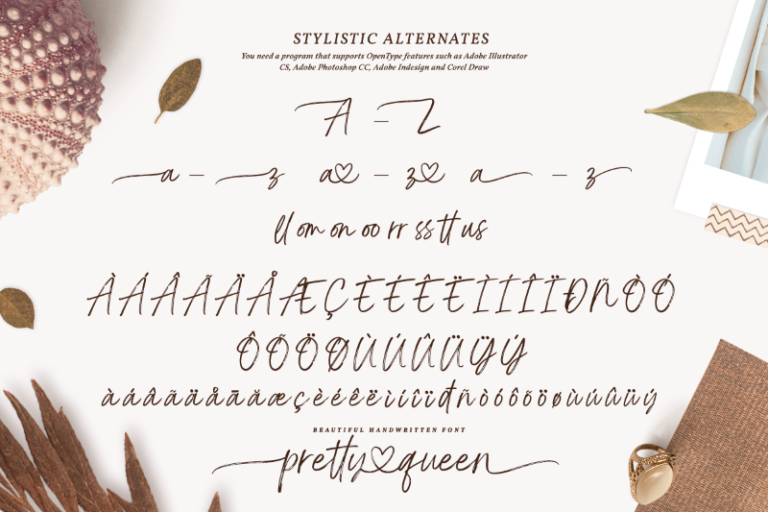 STYLISTIC ALTERNATES
You need a program that supports OpenType features such as Adobe Illustrator
CS, Adobe Photoshop CC, Adobe Indesign and Corel Draw
A – Z
a – z a♡ – z♡ a – z
ll om on oo rr ss tt us
ÀÁÂÃÄÅÆÇÈÉÊËÌÍÎÏÐÑÒÓ
ÔÕÖØÙÚÛÜŸÝ
àáâãäåāăæçèéêëìíîïđñòóôõöøùúûüý
BEAUTIFUL HANDWRITTEN FONT
pretty♡queen